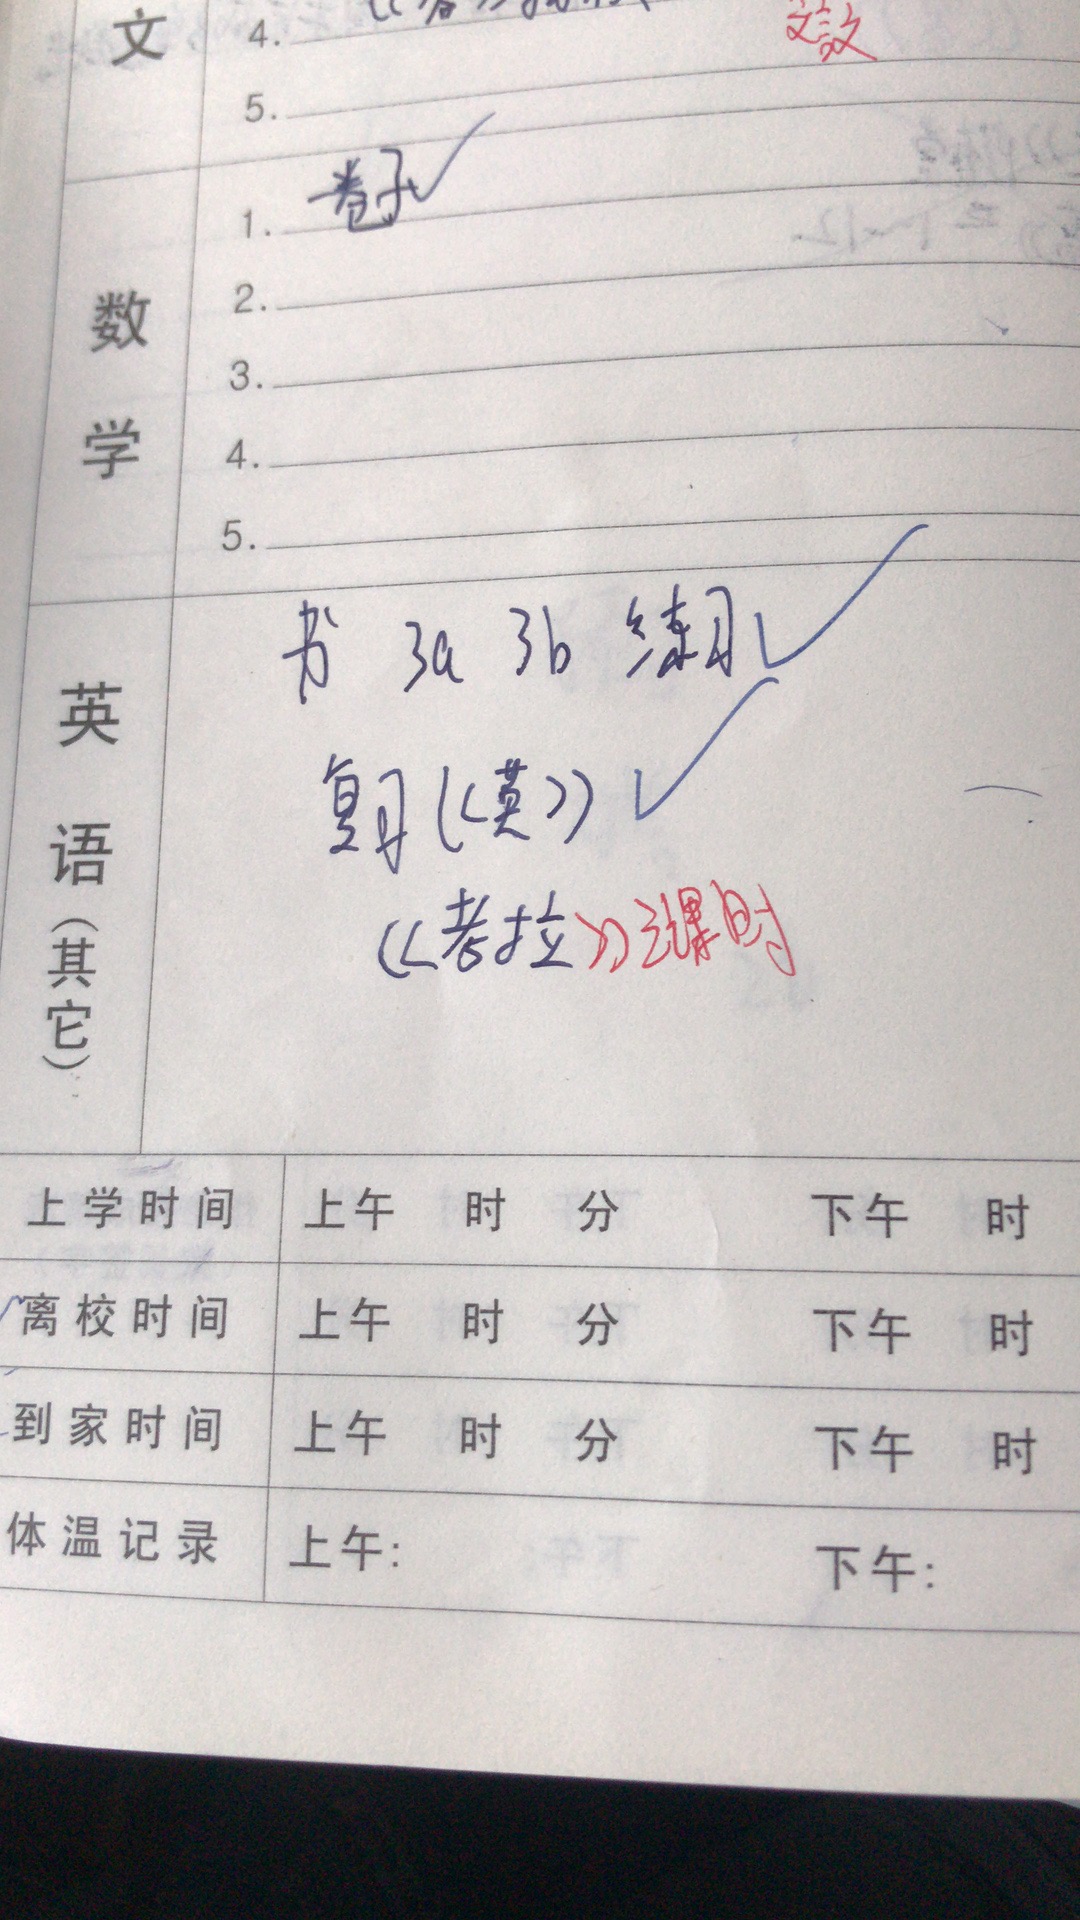 文
4.
5.
数学
1. 一卷子
2.
3.
4.
5.
英语(其它)
书 3a 3b 练习
复习《英》
《考拉》3课时
上学时间 上午 时 分 下午 时
离校时间 上午 时 分 下午 时
到家时间 上午 时 分 下午 时
体温记录 上午: 下午: